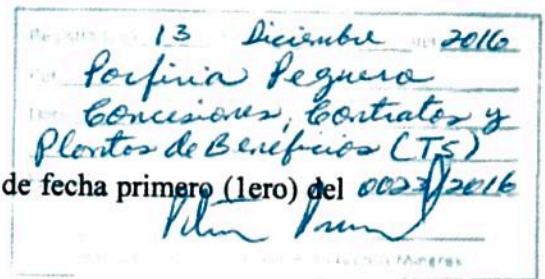 13 Diciembre 2016
Porfiria Peguero
Concesiones, Contratos y
Plantas de Beneficios (TS)
de fecha primero (1ero) del 0023/2016
Mineros